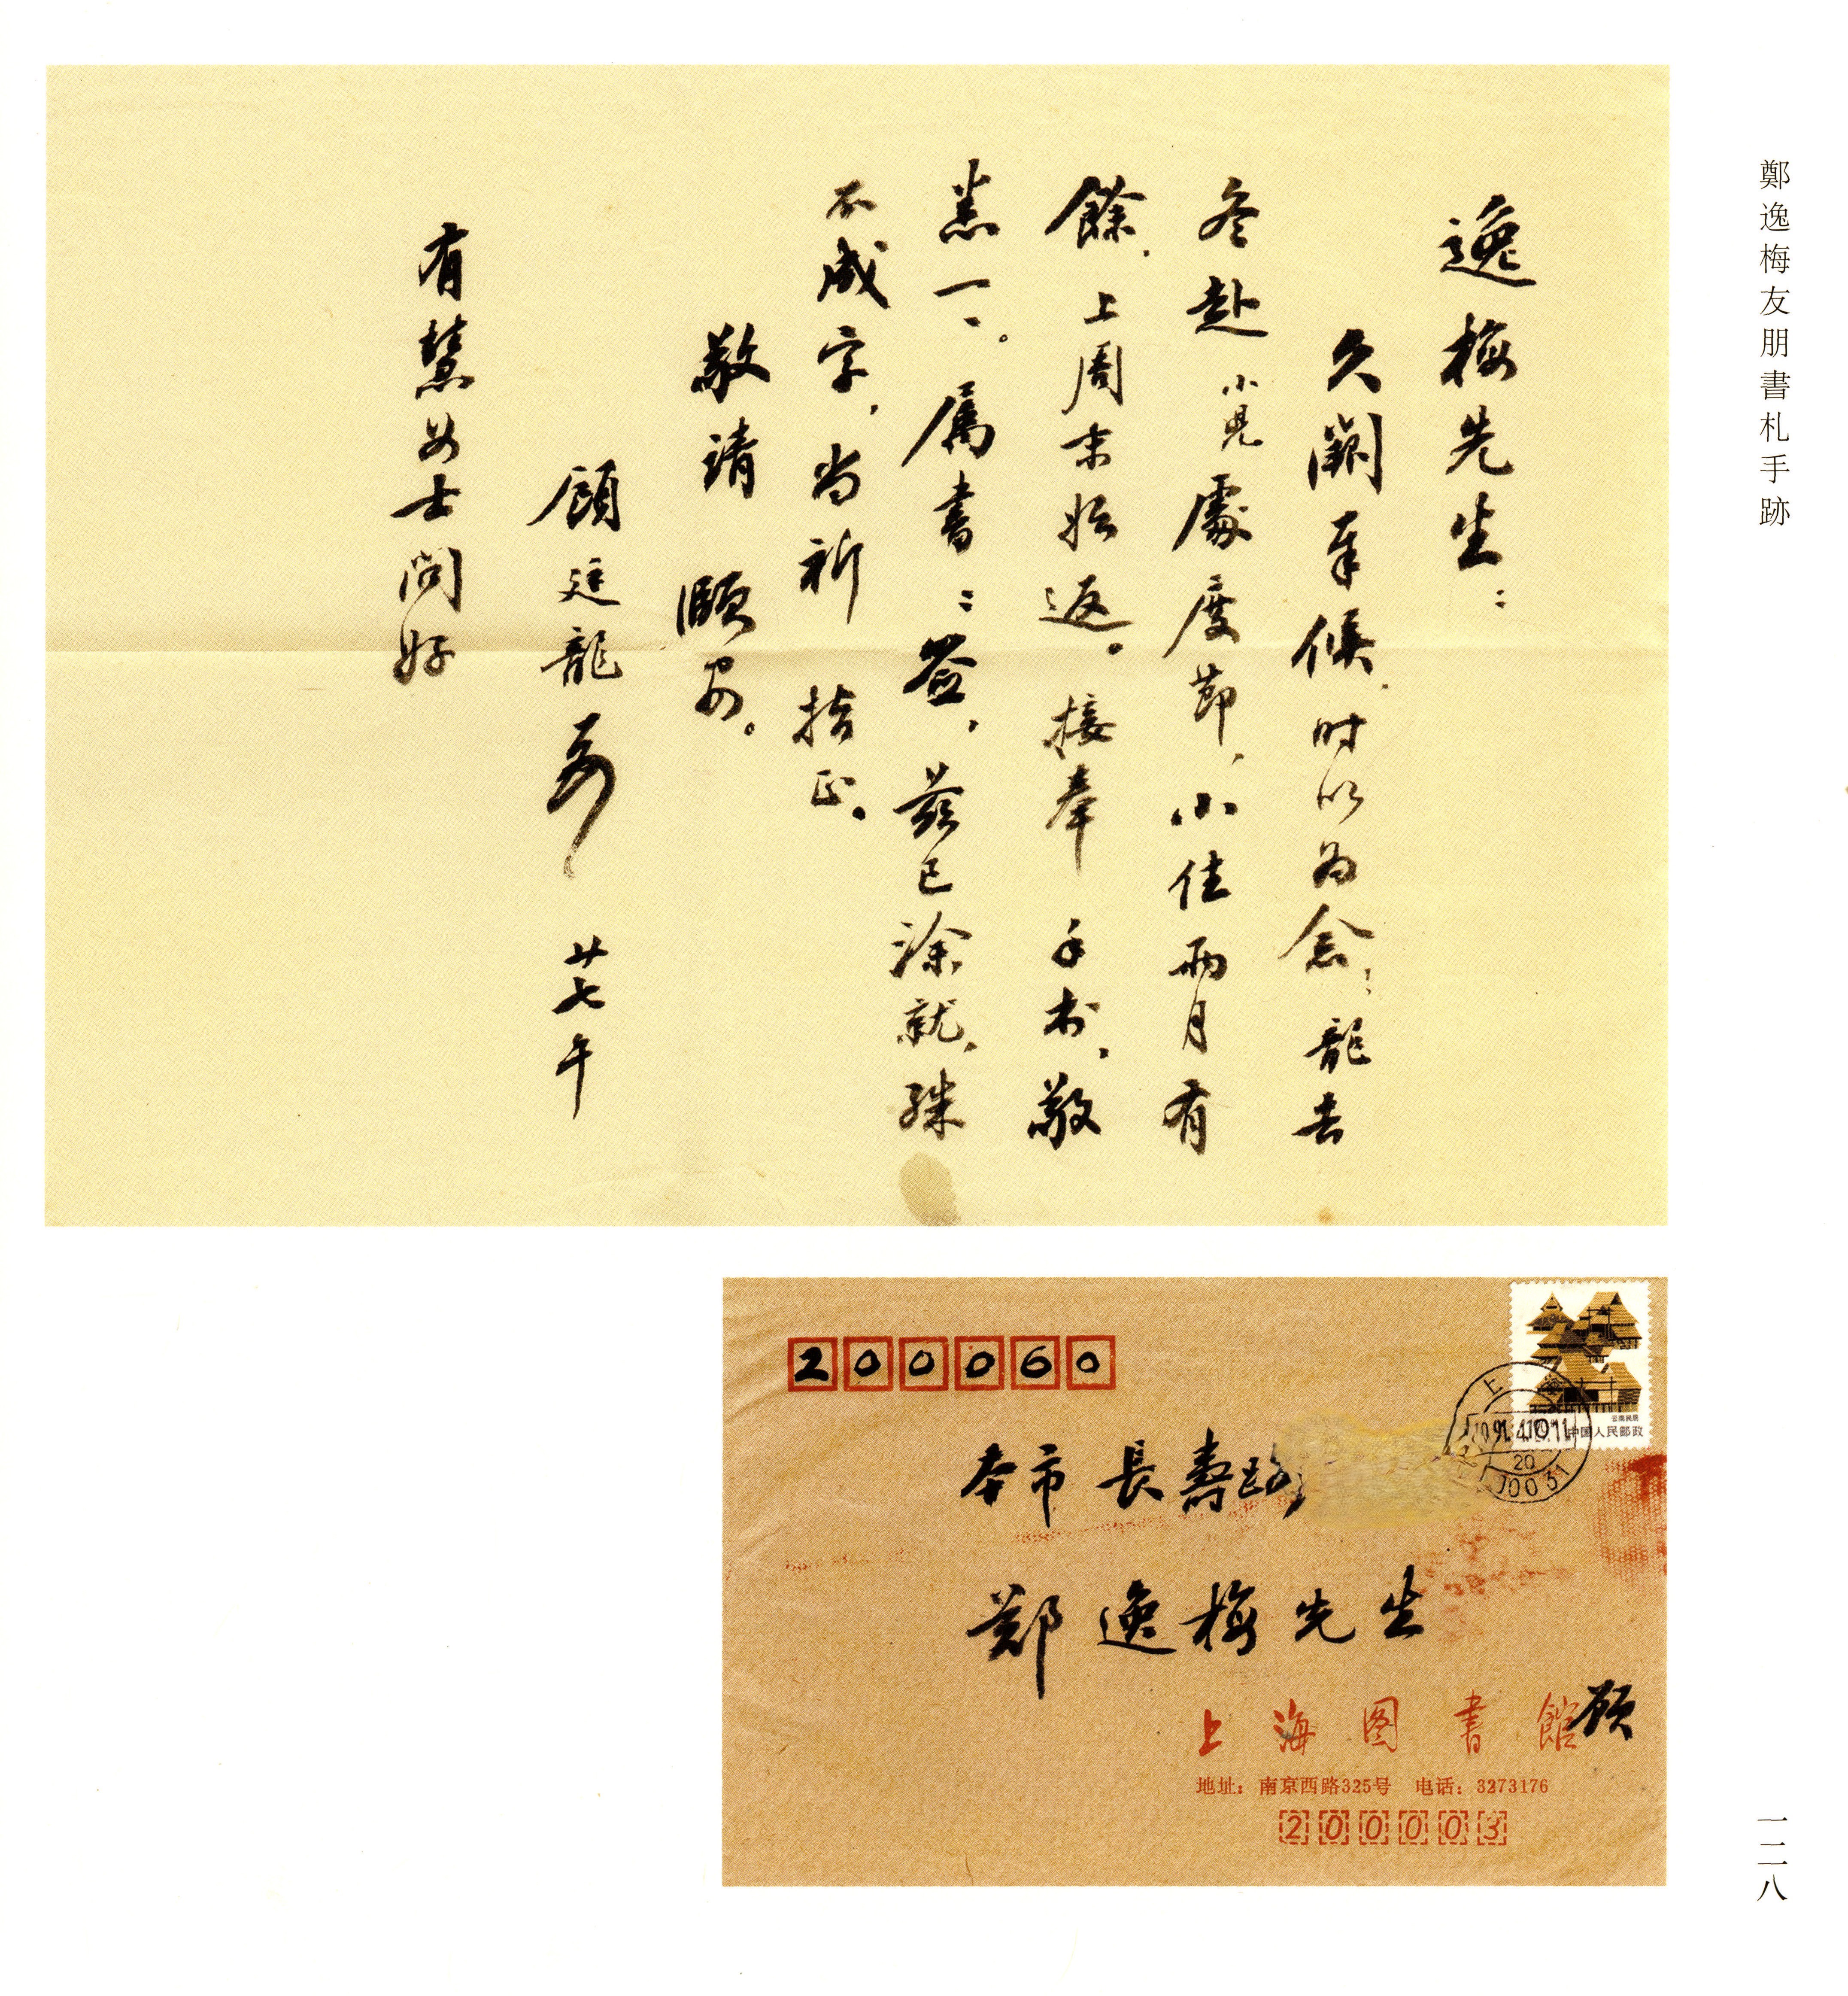 鄭逸梅友朋書札手跡
逸梅先生：
久闕奉候，时以为念，龍去
冬赴小兒處度節，小住兩月有
餘，上周末始返。接奉手书，敬
悉一一。属書：签，茲已涂就，殊
不成字，尚祈指正。
敬請頤安。
顧廷龍
廿七午
有慧女士问好
200060
中国人民邮政
本市長壽路
鄭逸梅先生
上海图書館顾
地址：南京西路325号 电话：3273176
200003
一二八